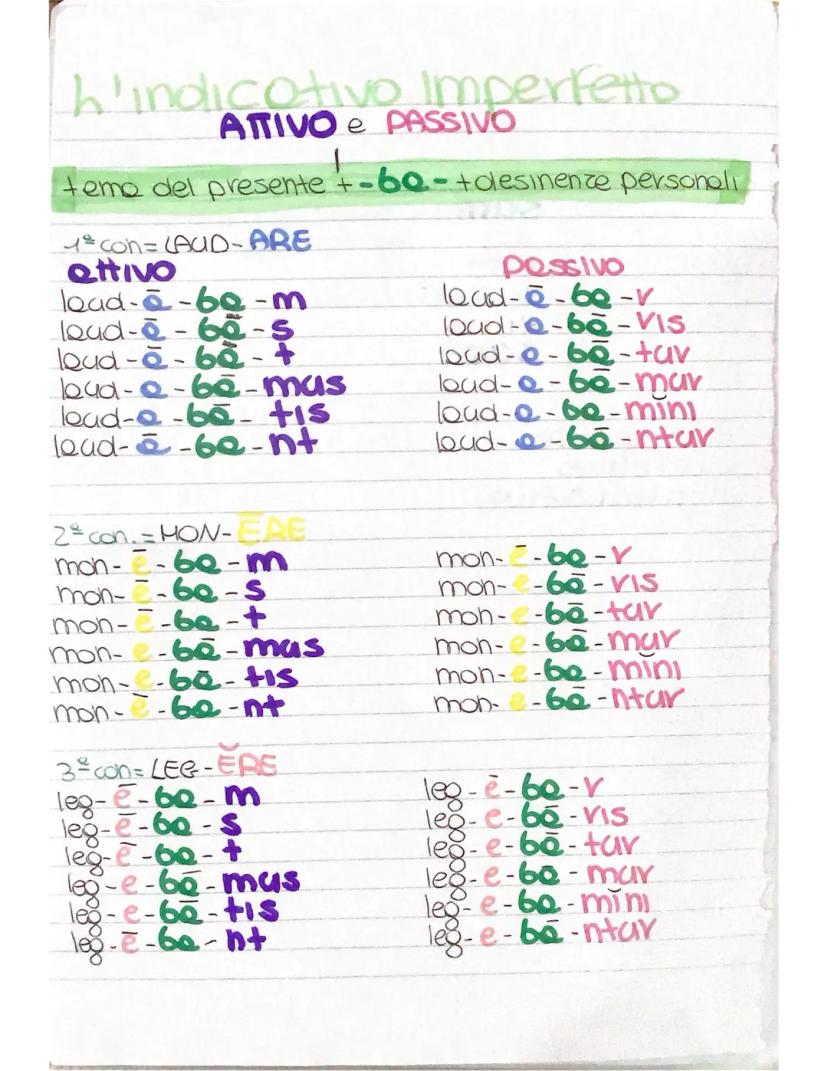 L'indicativo Imperfetto
ATTIVO e PASSIVO
tema del presente + -ba- + desinenze personali
1ª con = LAUD-ARE
attivo passivo
laud-ā-ba-m laud-ā-ba-r
laud-ā-bā-s laud-a-bā-ris
laud-ā-bā-t laud-a-bā-tur
laud-a-bā-mus laud-a-bā-mur
laud-a-bā-tis laud-a-ba-mĭni
laud-ā-ba-nt laud-a-bā-ntur
2ª con. = MON-ĒRE
mon-ē-ba-m mon-ē-ba-r
mon-ē-ba-s mon-e-bā-ris
mon-ē-ba-t mon-e-bā-tur
mon-e-bā-mus mon-e-bā-mur
mon-e-bā-tis mon-e-ba-mĭni
mon-ē-ba-nt mon-e-bā-ntur
3ª con = LEG-ĔRE
leg-ē-ba-m leg-ē-ba-r
leg-ē-ba-s leg-e-bā-ris
leg-ē-ba-t leg-e-bā-tur
leg-e-bā-mus leg-e-ba-mur
leg-e-bā-tis leg-e-ba-mĭni
leg-ē-ba-nt leg-e-bā-ntur